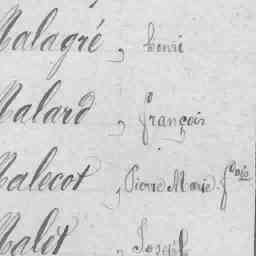 Malagré, henri
Malard, françois
Malecot, Pierre Marie fçois
Malét, Joseph